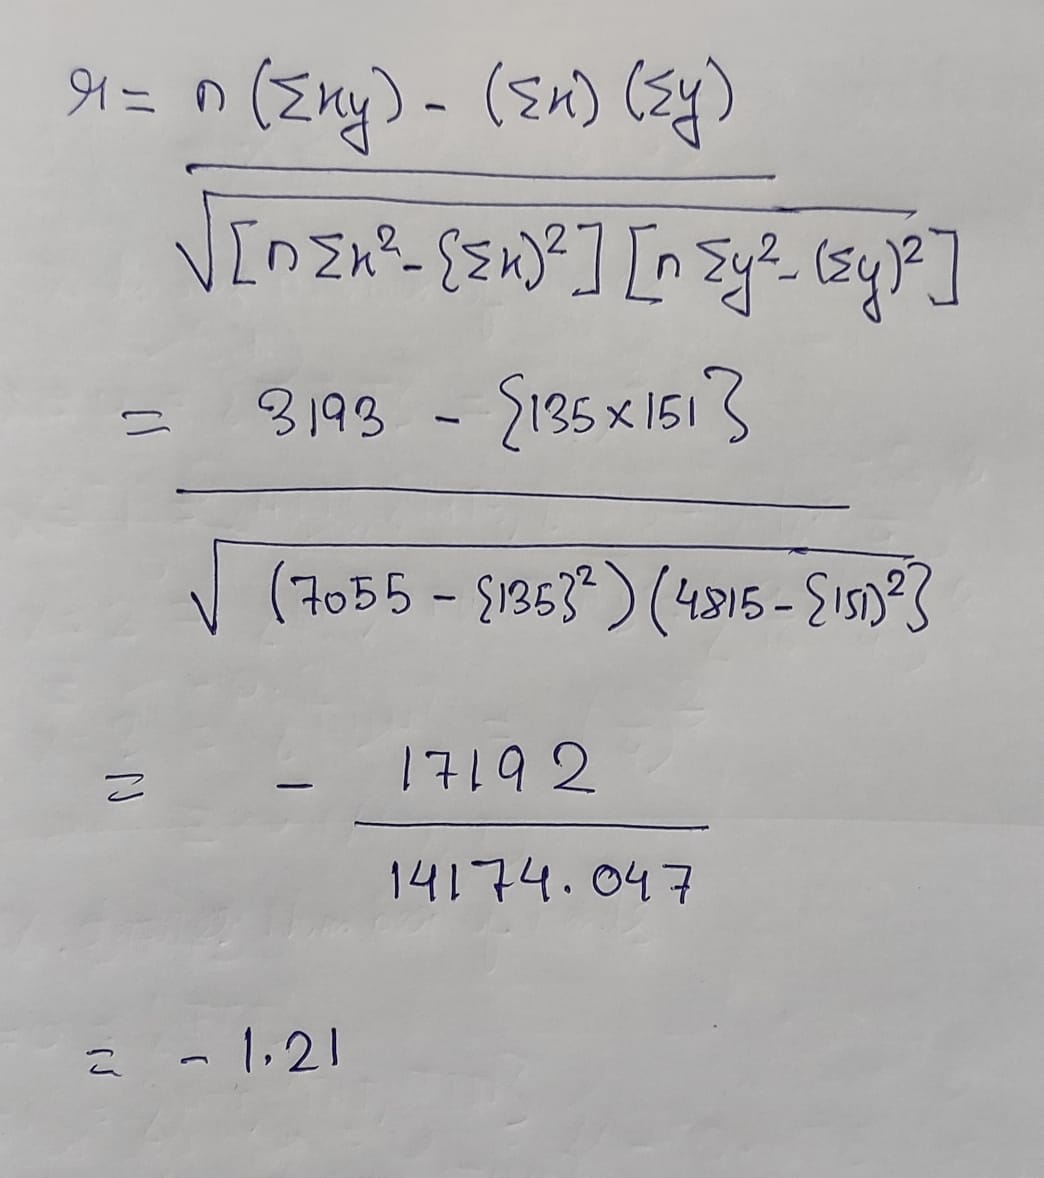 r = n (Σxy) - (Σx) (Σy)
√[nΣx²-{Σx)²] [nΣy²-(Σy)²]
= 3193 - {135 x 151}
√ (7055 - {135}²) (4815 - {151)²}
= - 17192
14174.047
= - 1.21